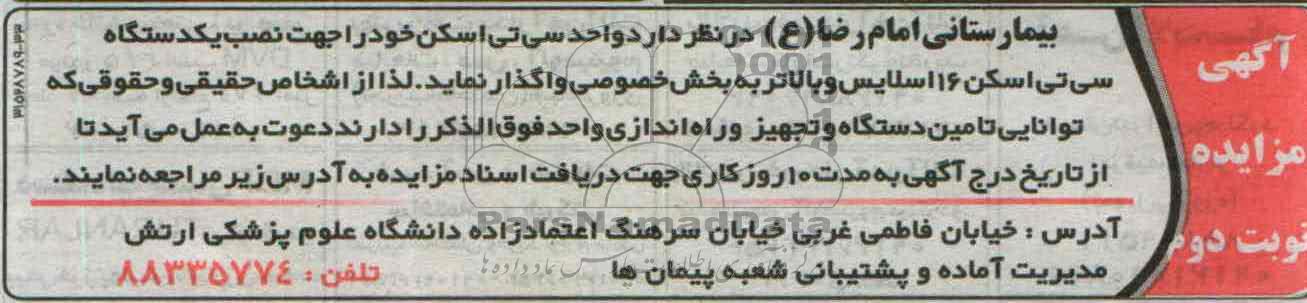 آگهی
مزایده
نوبت دوم
بیمارستانی امام رضا(ع) درنظر دارد واحد سی تی اسکن خود را جهت نصب یکدستگاه
سی تی اسکن ۱۶ اسلایس و بالاتر به بخش خصوصی واگذار نماید. لذا از اشخاص حقیقی و حقوقی که
توانایی تامین دستگاه و تجهیز و راه اندازی واحد فوق الذکر را دارند دعوت به عمل می آید تا
از تاریخ درج آگهی به مدت ۱۰ روز کاری جهت دریافت اسناد مزایده به آدرس زیر مراجعه نمایند.
آدرس : خیابان فاطمی غربی خیابان سرهنگ اعتمادزاده دانشگاه علوم پزشکی ارتش
مدیریت آماده و پشتیبانی شعبه پیمان ها
تلفن : ۸۸۳۳۵۷۷٤
ParsNamadData